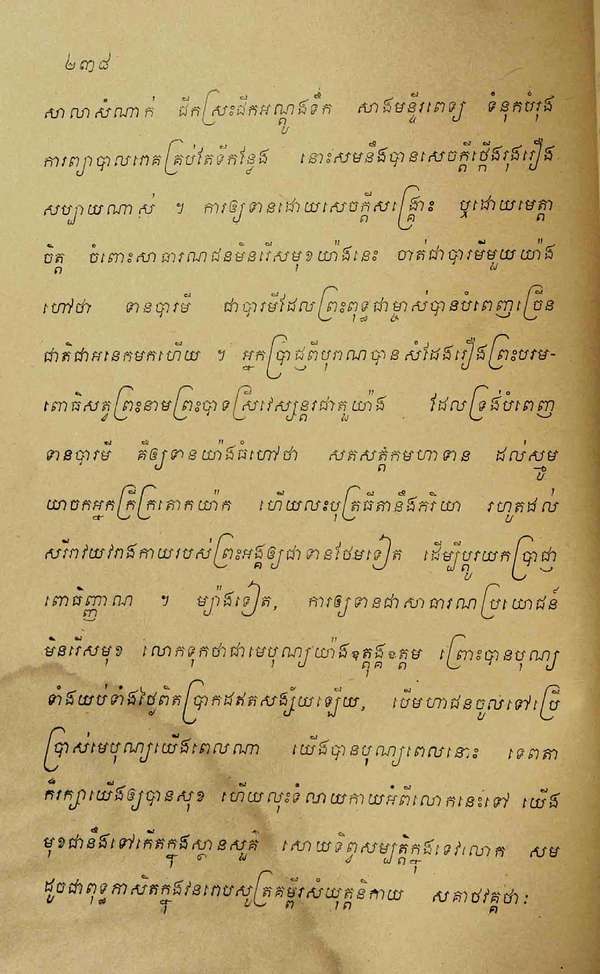 ២៣៨
សាលាសំណាក់ ជីកស្រះជីកអណ្ដូងទឹក សាងមន្ទីរពេទ្យ ទំនុកបំរុង
ការព្យាបាលរោគគ្រប់តែទីកន្លែង នោះសមនឹងបានសេចក្ដីថ្កើងរុងរឿង
សប្បាយណាស់ ។ ការឲ្យទានដោយសេចក្ដីសង្គ្រោះ ឬដោយមេត្តា
ចិត្ត ចំពោះសាធារណជនមិនរើសមុខយ៉ាងនេះ ចាត់ជាបារមីមួយយ៉ាង
ហៅថា ទានបារមី ជាបារមីដែលព្រះពុទ្ធជាម្ចាស់បានបំពេញច្រើន
ជាតិជាអនេកមកហើយ ។ អ្នកប្រាជ្ញពីបុរាណបានសំដែងរឿងព្រះបរម-
ពោធិសត្វព្រះនាមព្រះបាទស្រីវេស្សន្តរជាតួយ៉ាង ដែលទ្រង់បំពេញ
ទានបារមី គឺឲ្យទានយ៉ាងធំហៅថា សតសត្តកមហាទាន ដល់ស្មូម
យាចកអ្នកក្រីក្រតោកយ៉ាក ហើយលះបុត្រធីតានឹងភរិយា រហូតដល់
សរីរាវយវរាងកាយរបស់ព្រះអង្គឲ្យជាទានថែមទៀត ដើម្បីប្ដូរយកប្រាជ្ញា
ពោធិញ្ញាណ ។ ម្យ៉ាងទៀត, ការឲ្យទានជាសាធារណប្រយោជន៍
មិនរើសមុខ លោកទុកថាជាមេបុណ្យយ៉ាងឧត្តុង្គឧត្តម ព្រោះបានបុណ្យ
ទាំងយប់ទាំងថ្ងៃពិតប្រាកដឥតសង្ស័យឡើយ, បើមហាជនចូលទៅប្រើ
ប្រាស់មេបុណ្យយើងពេលណា យើងបានបុណ្យពេលនោះ ទេពតា
ក៏រក្សាយើងឲ្យបានសុខ ហើយលុះទំលាយកាយអំពីលោកនេះទៅ យើង
មុខជានឹងទៅកើតក្នុងស្ថានសួគ៌ សោយទិព្វសម្បត្តិក្នុងទេវលោក សម
ដូចជាពុទ្ធភាសិតក្នុងវនរោបសូត្រគម្ពីរសំយុត្តនិកាយ សគាថវគ្គថា: